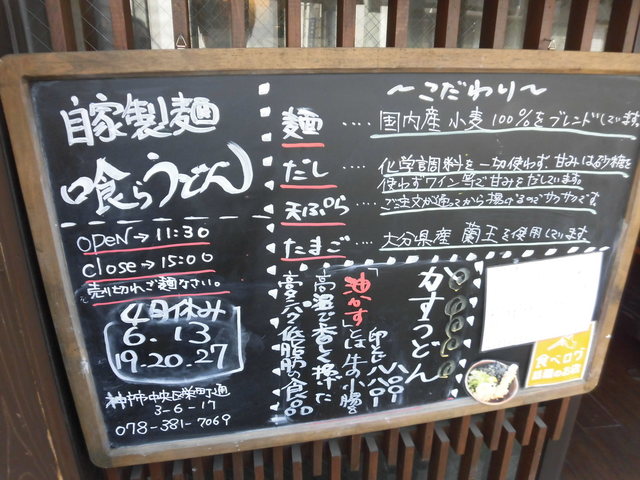 自家製麺
喰らうどん
OPEN→11:30
CLOSE→15:00
売り切れご麺なさい。
4月休み
6.13
19.20.27
神戸市中央区栄町通
3-6-17
078-381-7069
〜こだわり〜
麺 .... 国内産 小麦100%をブレンドしています。
だし 化学調料を一切使わず、甘みは砂糖を
使わずワイン等で甘みをだしています。
天ぷら ご注文が通ってから揚げるのでサクサクです。
たまご .... 大分県産 蘭王を使用しています
かすうどん
「油かす」とは牛の小腸を
高温で香しく揚げた
高タンパク低脂肪の食品
食べログ